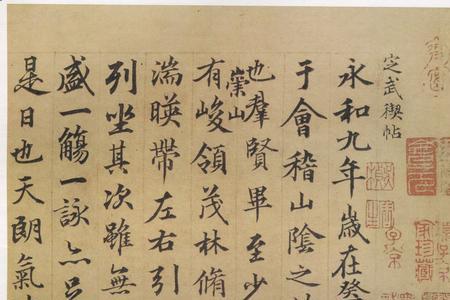 定武禊帖
永和九年歲在癸
于會稽山陰之
也羣賢畢至少
崇山
有峻領茂林脩
湍暎帶左右引
列坐其次雖無
盛一觴一詠亦
是日也天朗氣
子京
家珍藏